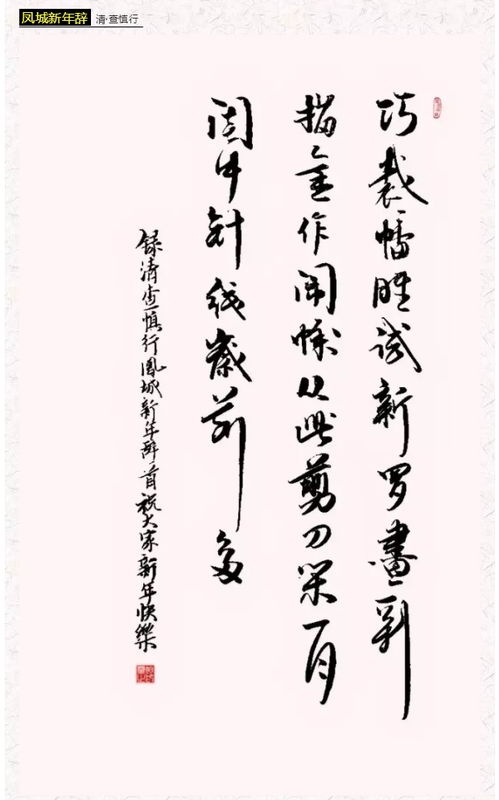 凤城新年辞 清·查慎行
巧裁幡胜试新罗畫彩
描金作闹蛾从此剪刀闲一月
闺中针线歲前多
録清查慎行鳳城新年辞一首祝大家新年快樂